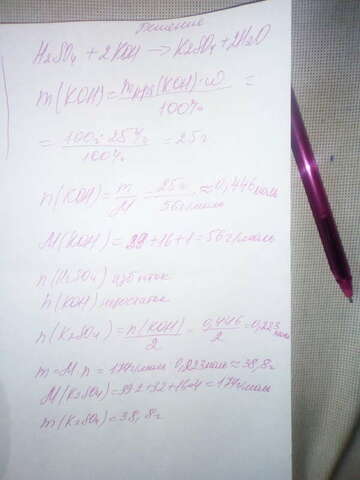 Решение
H₂SO₄ + 2KOH → K₂SO₄ + 2H₂O
m(KOH) = mр-ра(KOH)·ω / 100% =
= 100г·25% / 100% = 25г
n(KOH) = m / M = 25г / 56г/моль ≈ 0,446моль
M(KOH) = 39+16+1 = 56г/моль
n(H₂SO₄) избыток
n(KOH) недостаток
n(K₂SO₄) = n(KOH) / 2 = 0,446 / 2 = 0,223 моль
m = M·n = 174г/моль·0,223моль ≈ 38,8г
M(K₂SO₄) = 39·2+32+16·4 = 174г/моль
m(K₂SO₄) = 38,8г